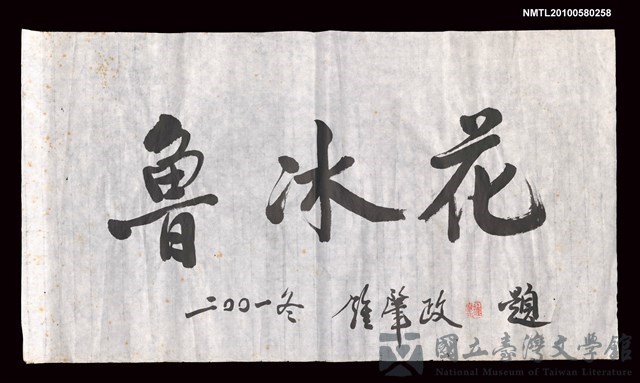 NMTL20100580258
魯冰花
二〇〇一冬 鍾肇政 題
國立臺灣文學館
National Museum of Taiwan Literature